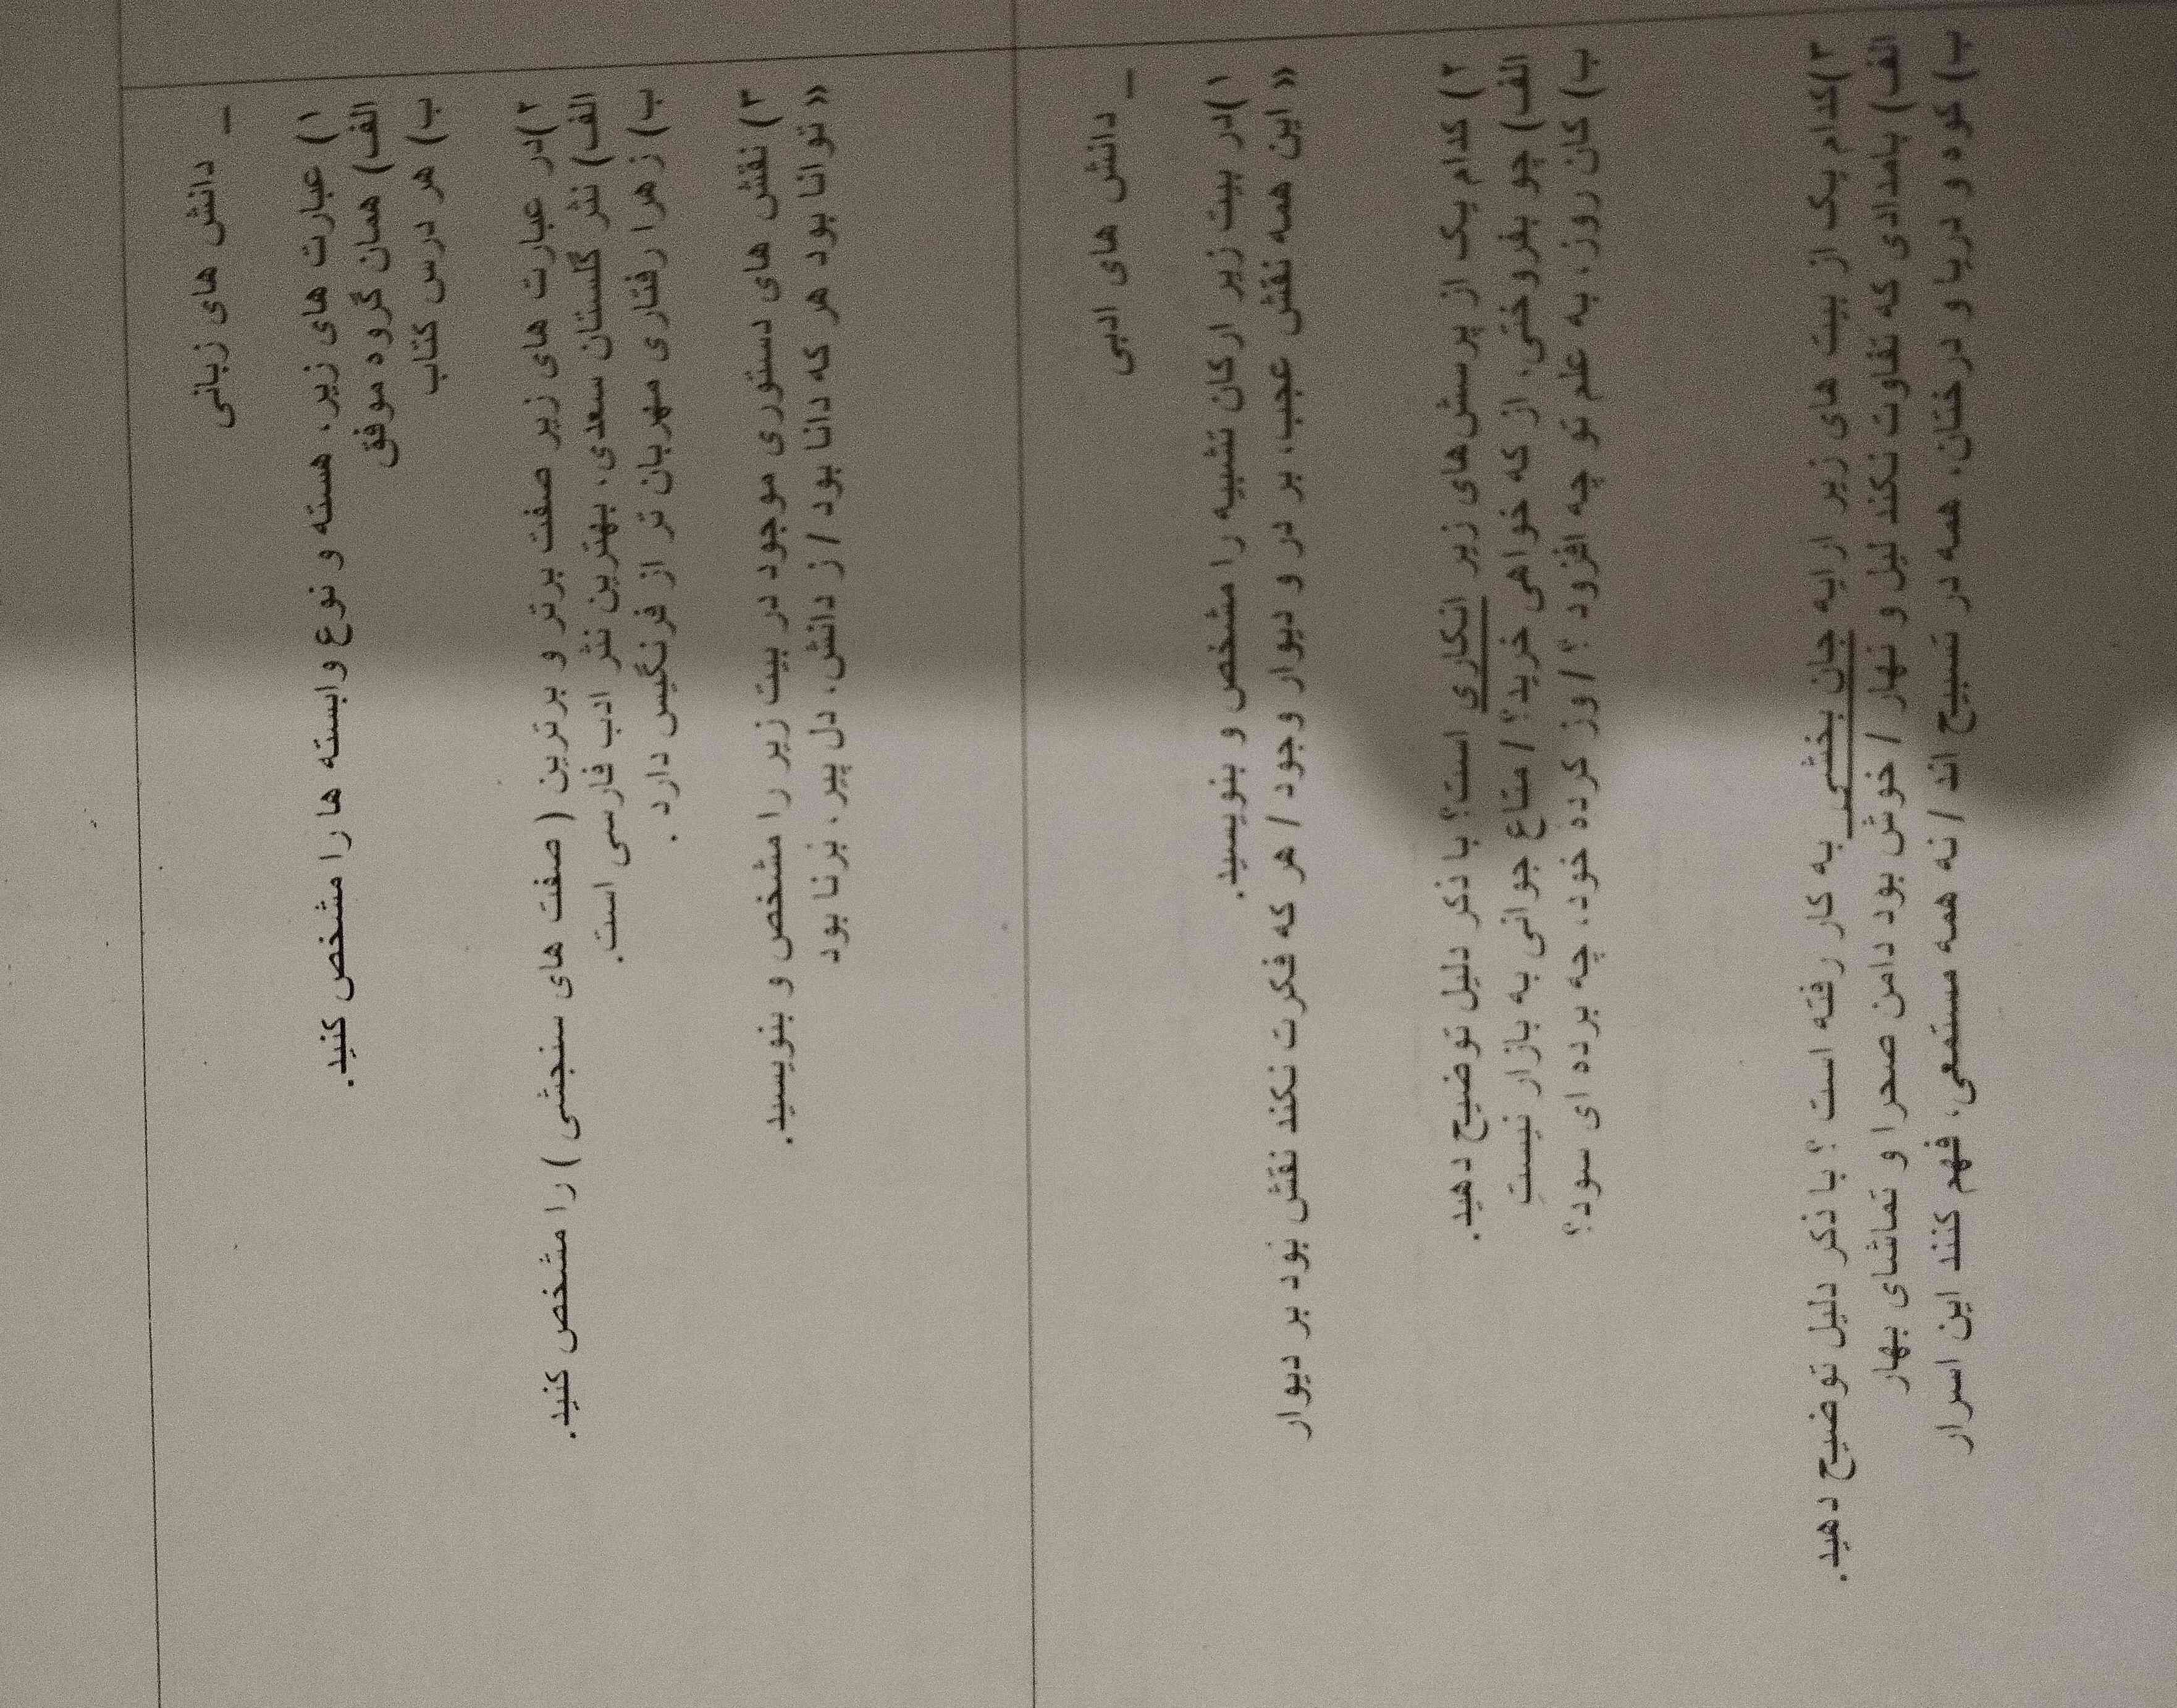 _ دانش های زبانی
۱) عبارت های زیر، هسته و نوع وابسته ها را مشخص کنید.
الف) همان گروه موفق
ب) هر درس کتاب
۲)در عبارت های زیر صفت برتر و برترین ( صفت های سنجشی ) را مشخص کنید.
الف) نثر گلستان سعدی، بهترین نثر ادب فارسی است.
ب) زهرا رفتاری مهربان تر از فرنگیس دارد .
۳) نقش های دستوری موجود در بیت زیر را مشخص و بنویسید.
« توانا بود هر که دانا بود / ز دانش، دل پیر، برنا بود
_ دانش های ادبی
۱)در بیت زیر ارکان تشبیه را مشخص و بنویسید.
« این همه نقش عجب، بر در و دیوار وجود / هر که فکرت نکند نقش بود بر دیوار
۲) کدام یک از پرسش‌های زیر انکاری است؟ با ذکر دلیل توضیح دهید.
الف) چو بفروختی، از که خواهی خرید؟ / متاع جوانی به بازار نیست
ب) کان روز، به علم تو چه افزود ؟ / وز کرده خود، چه برده ای سود؟
۳)کدام یک از بیت های زیر ارایه جان بخشی به کار رفته است ؟ با ذکر دلیل توضیح دهید.
الف) بامدادی که تفاوت نکند لیل و نهار / خوش بود دامن صحرا و تماشای بهار
ب) کوه و دریا و درختان، همه در تسبیح اند / نه همه مستمعی، فهم کنند این اسرار